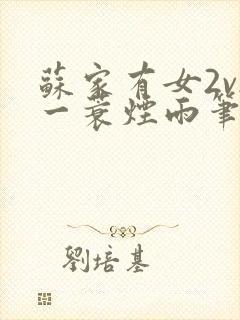 蘇家有女2v
一蓑煙雨筆
劉培基